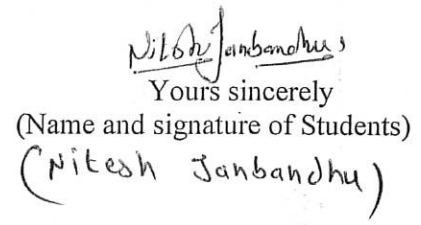 Nitesh Janbandhu
Yours sincerely
(Name and signature of Students)
(Nitesh Janbandhu)